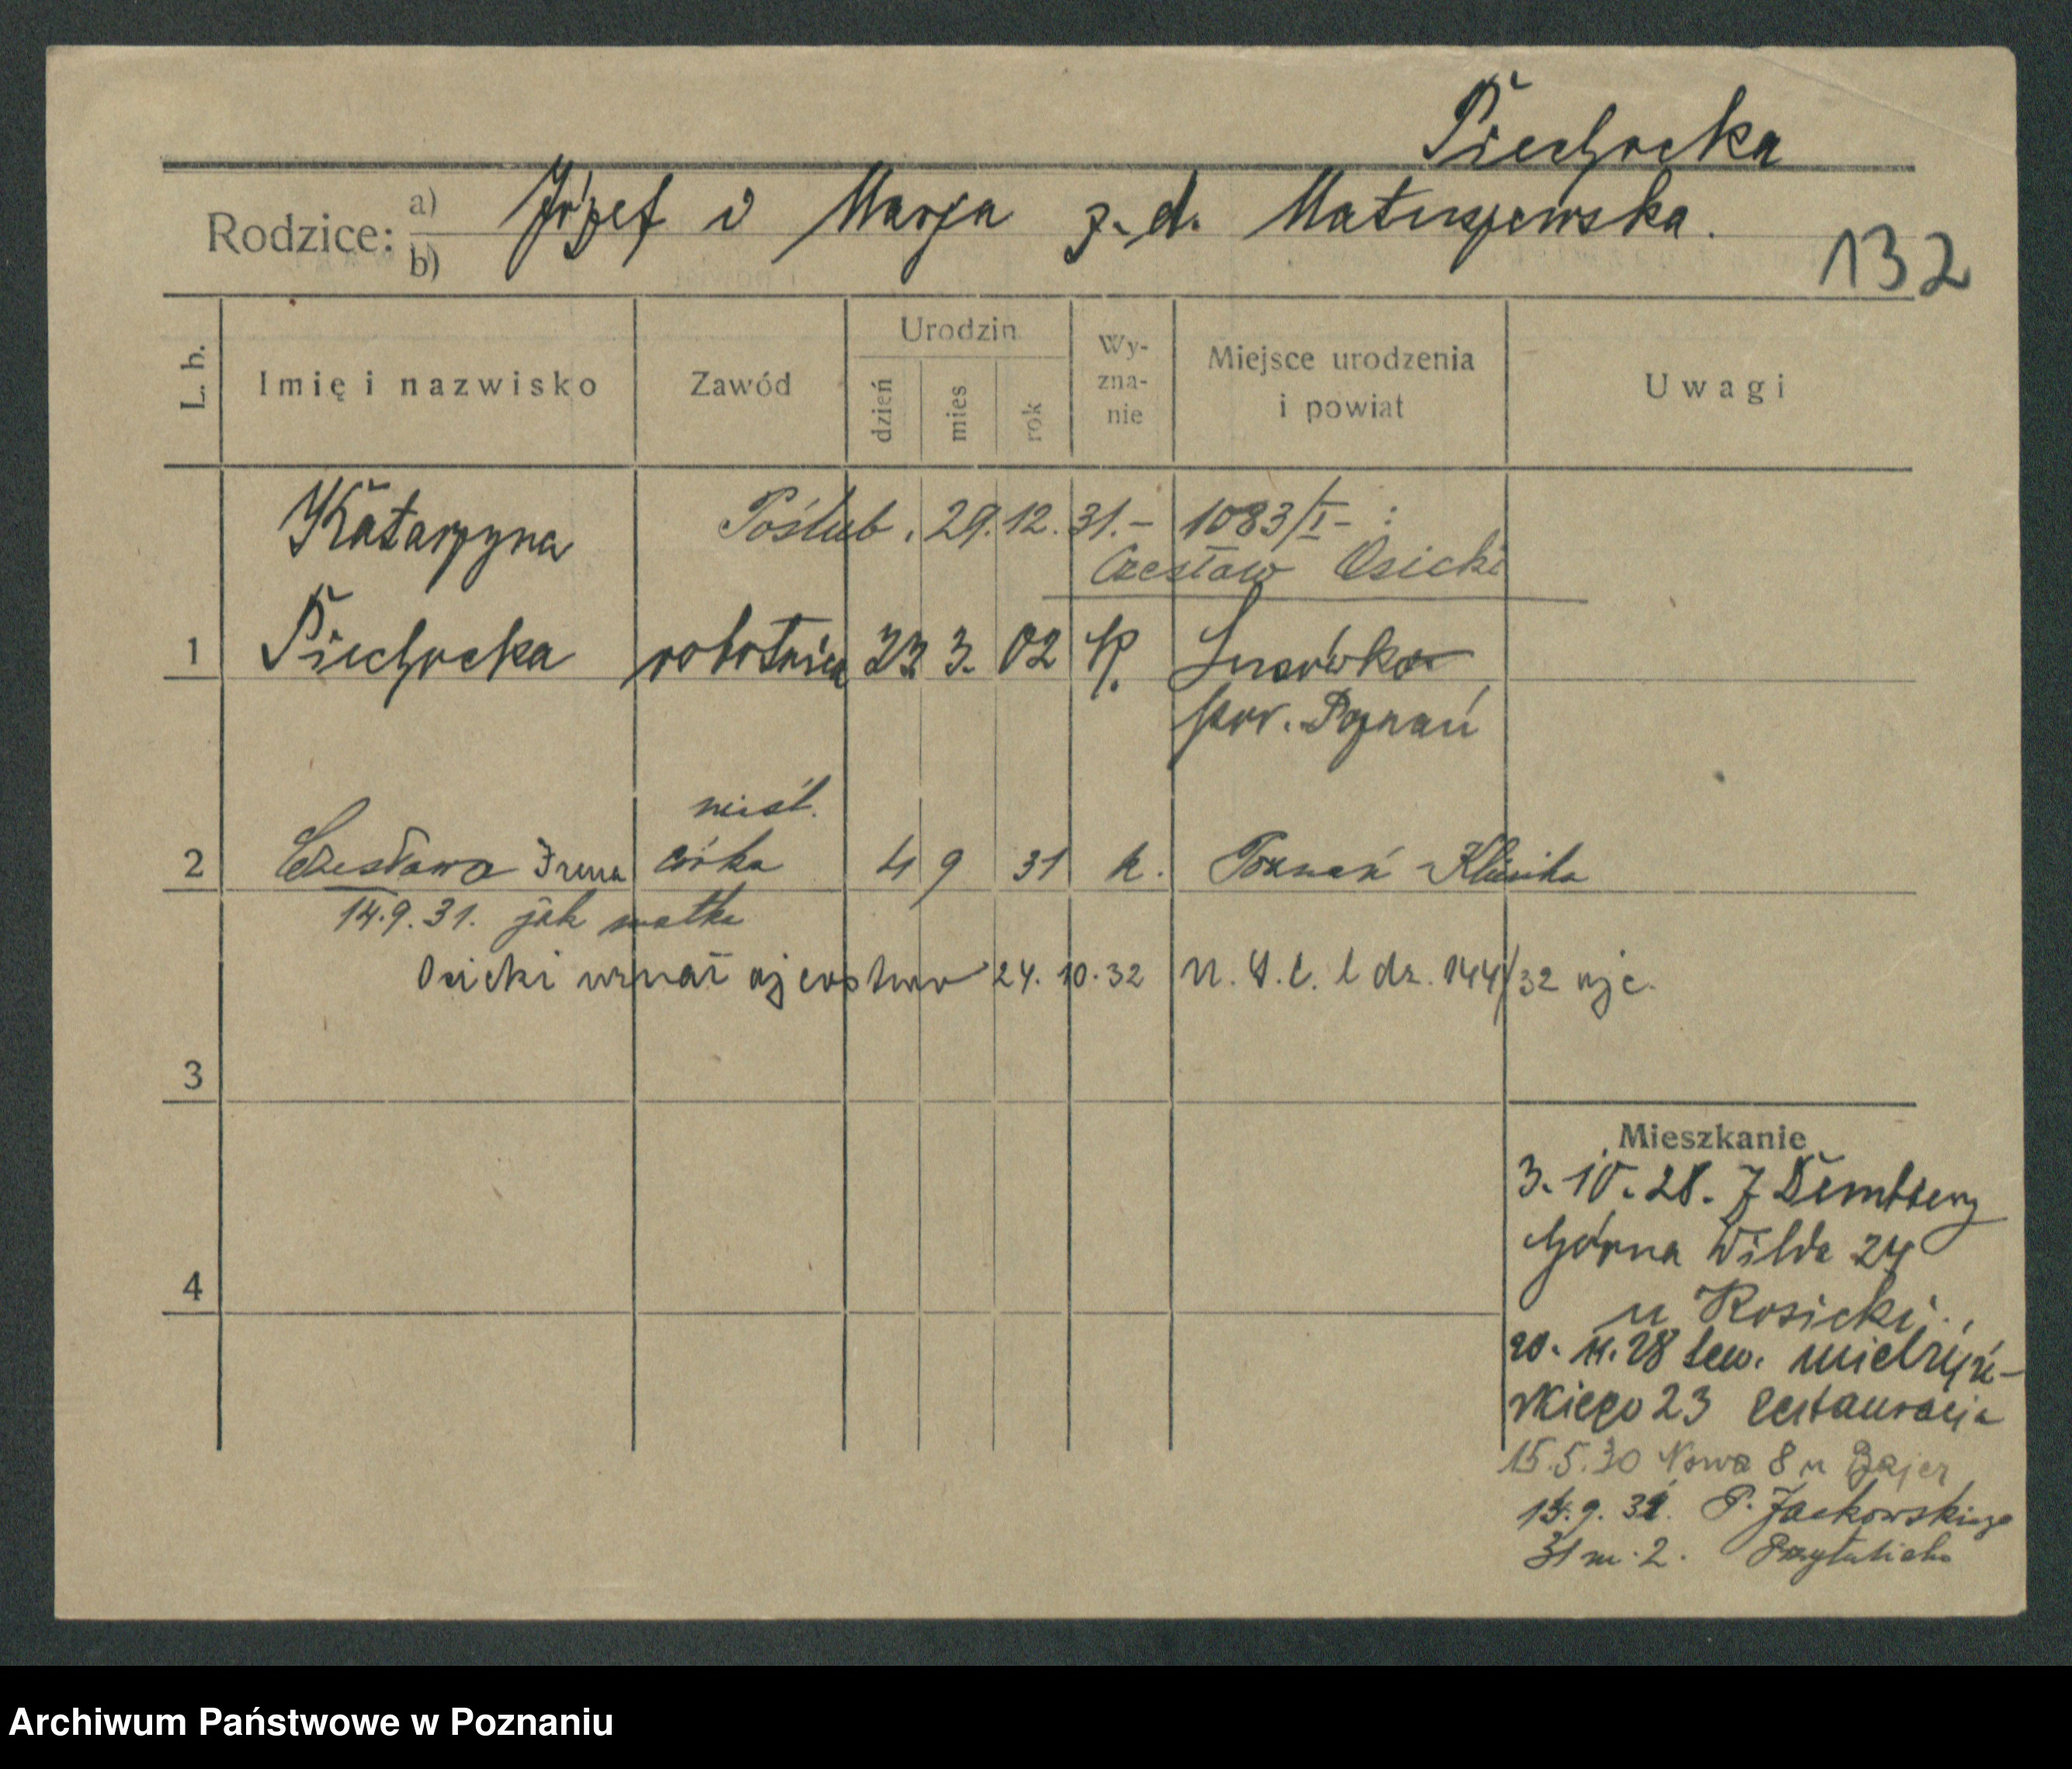 Piechocka
Rodzice: a) b) Józef i Marja z. d. Matuszewska.
132
L. b.
Imię i nazwisko
Zawód
Urodzin
dzień
mies
rok
Wy-
zna-
nie
Miejsce urodzenia
i powiat
Uwagi
Katarzyna
Poślub. 29.12.31.- 1083/I- :
Czesław Osicki
1 Piechocka robotnica 23 3. 02 K. Lusówko
pow. Poznań
nieśl.
2 Czesława Irena córka 4 9 31 k. Poznań Klinika
14.9.31. jak matka
Osicki uznał ojcostwo 24.10.32 U.S.C. l dz. 144/32 ojc.
3
4
Mieszkanie
3.10.28. Dembsen
Górna Wilda 24
u Rosicki.
20.11.28 Sew. Mielżyń-
skiego 23 restauracja
15.5.30 Nowa 8 u Bajer
P. Jackowskiego
31 m. 2.
Archiwum Państwowe w Poznaniu